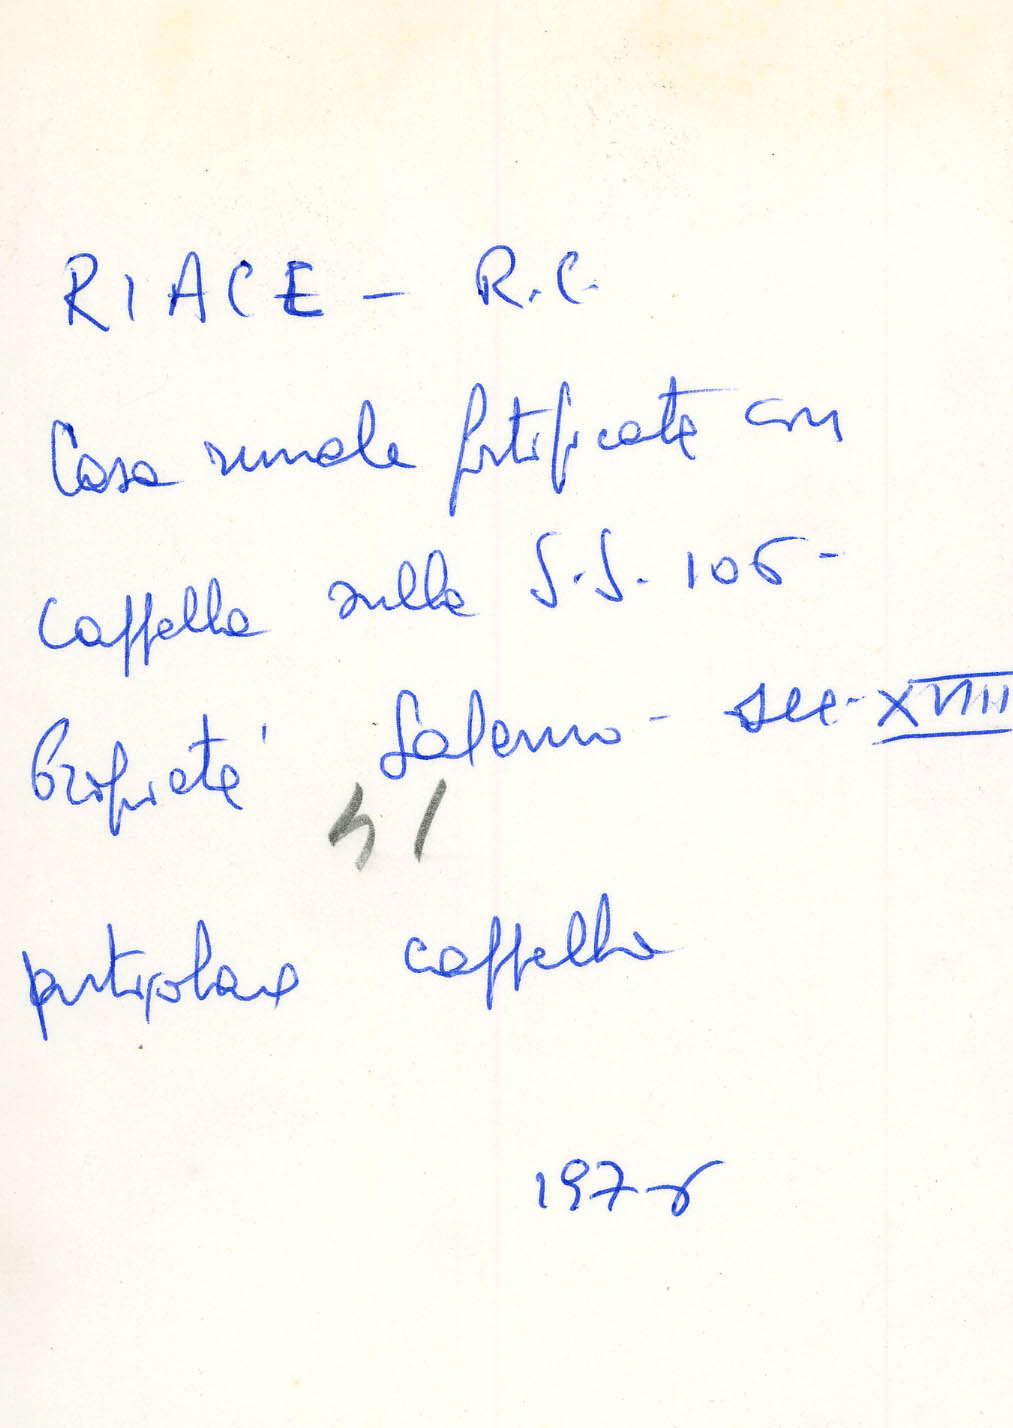 RIACE - R.C.
Casa rurale fortificata con
cappella sulla S.S. 106 -
Proprietà Salerno - sec. XVIII
41
particolare cappella
1978